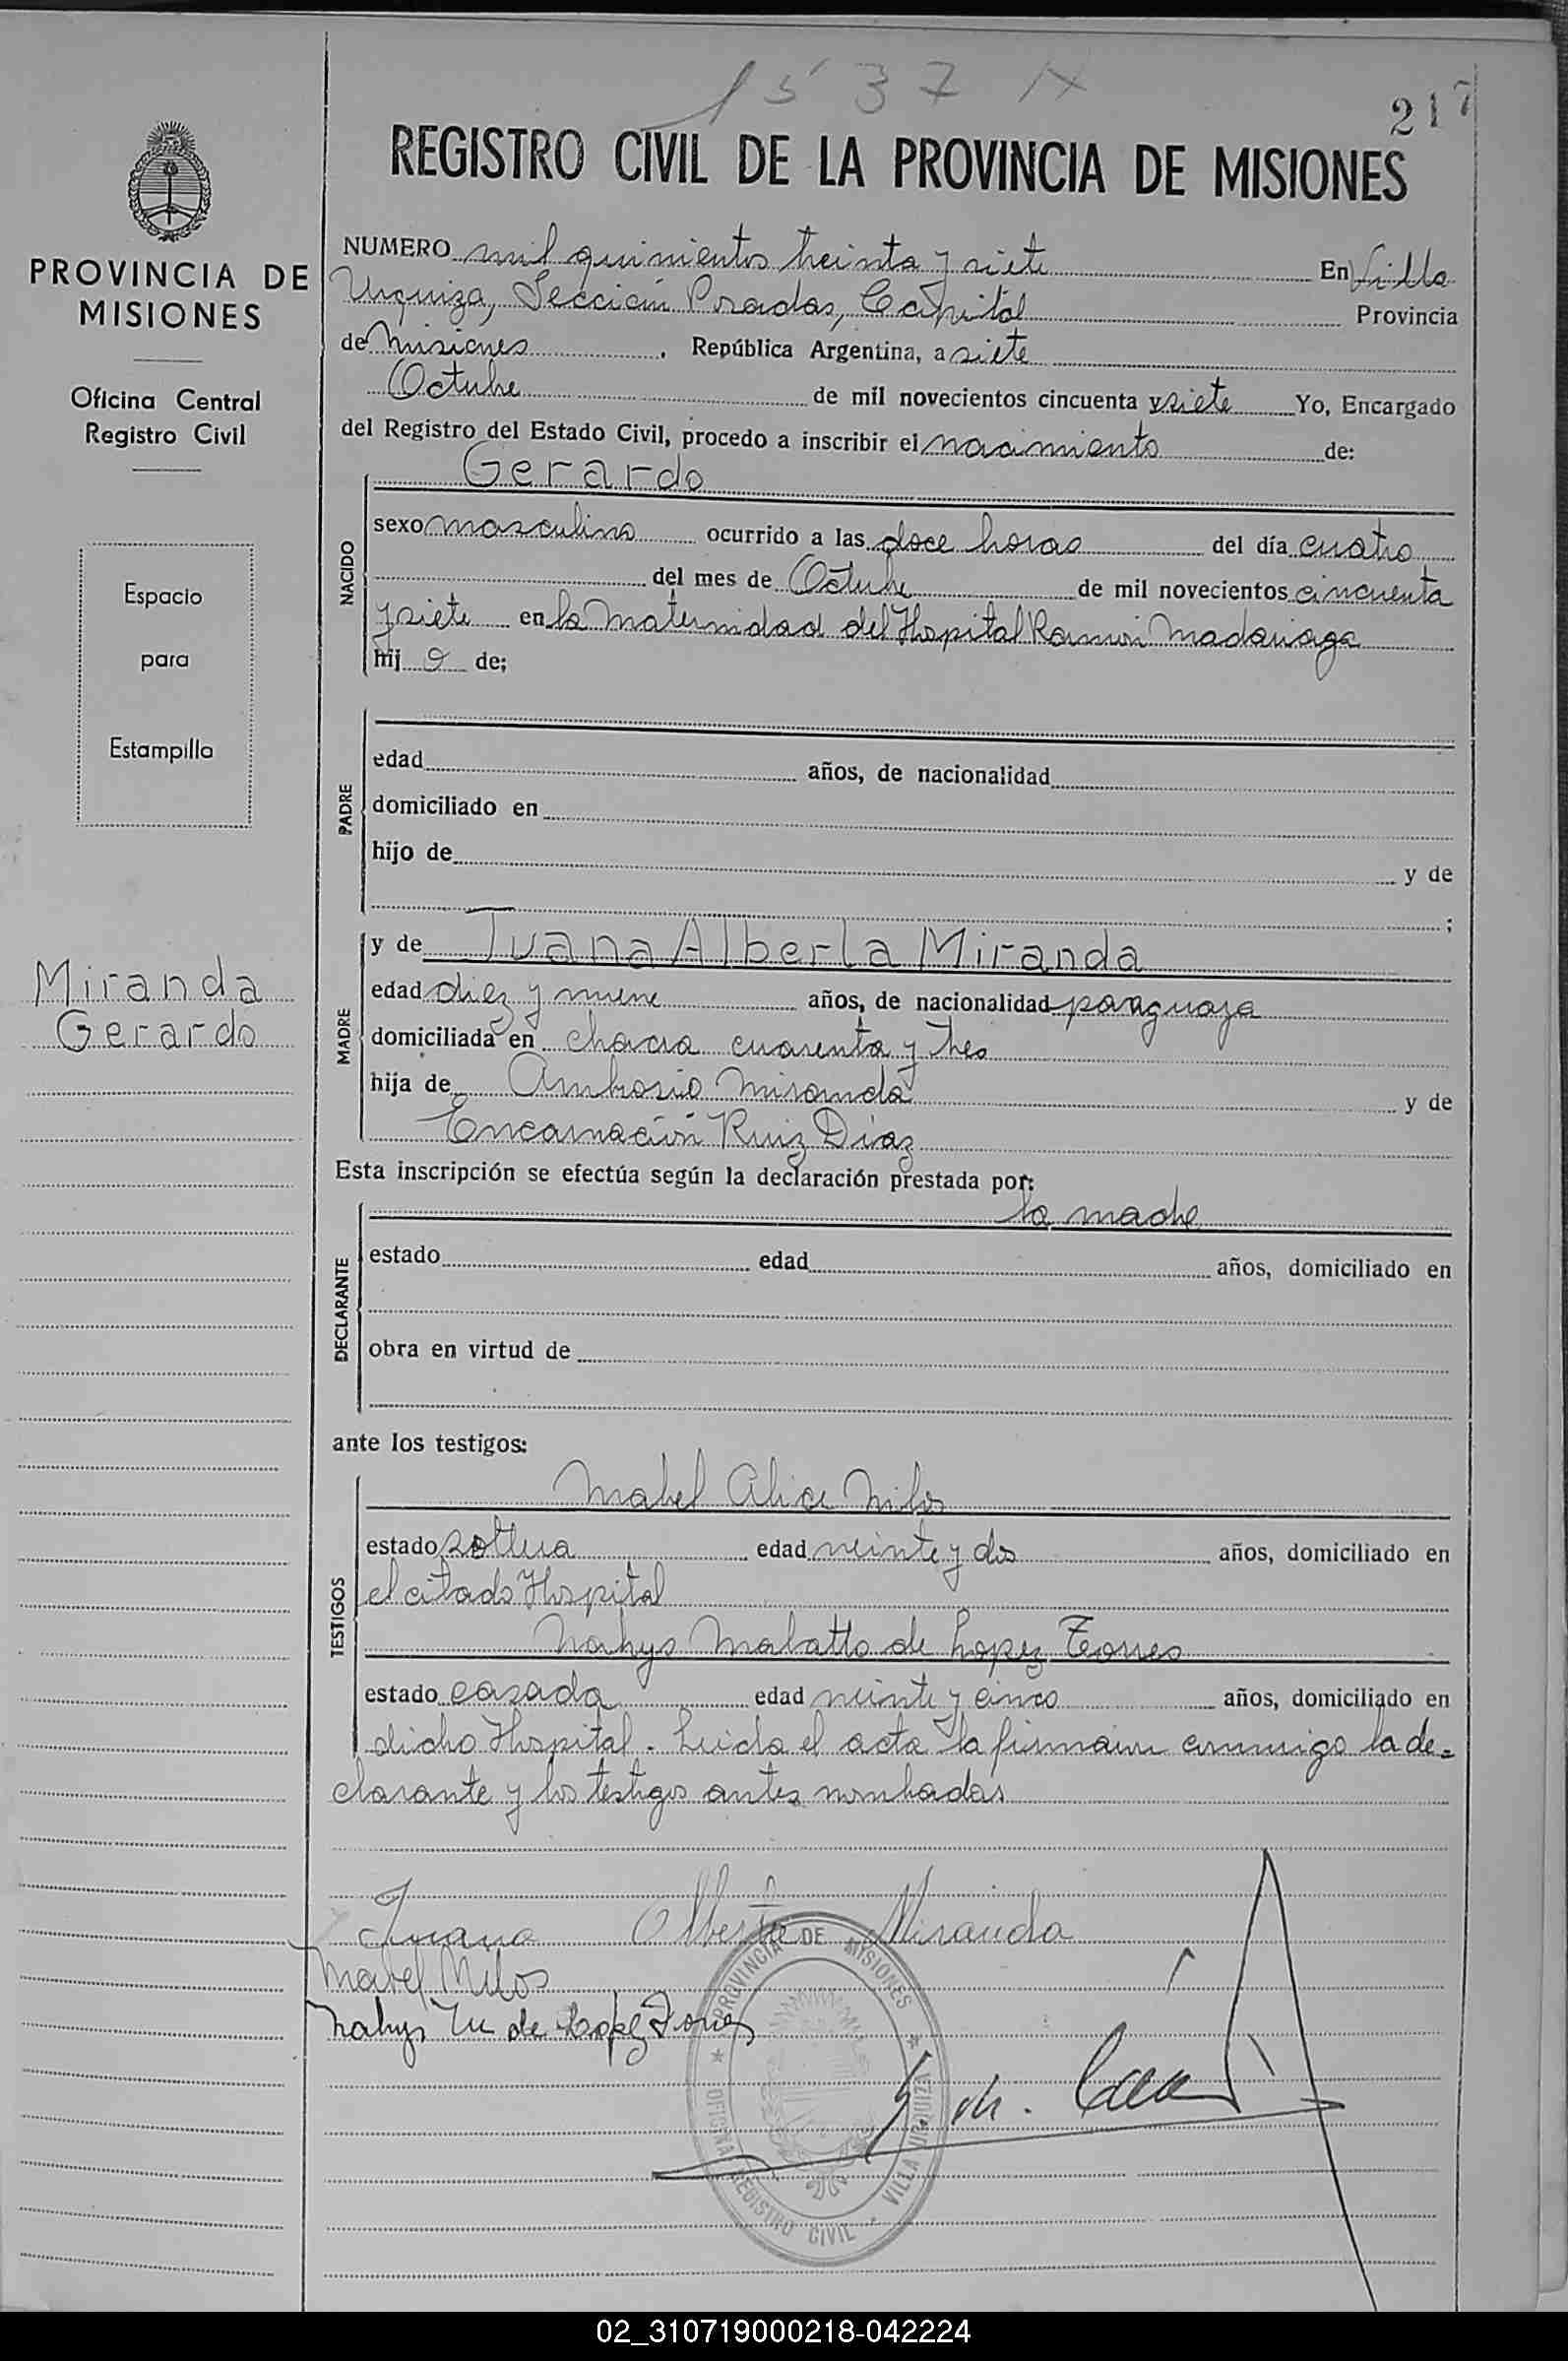 1537 IX
217
REGISTRO CIVIL DE LA PROVINCIA DE MISIONES
PROVINCIA DE
MISIONES
Oficina Central
Registro Civil
Espacio
para
Estampilla
Miranda
Gerardo
NUMERO mil quinientos treinta y siete En Villa
Urquiza, Sección Posadas, Capital Provincia
de Misiones, República Argentina, a siete
Octubre de mil novecientos cincuenta y siete Yo, Encargado
del Registro del Estado Civil, procedo a inscribir el nacimiento de:
NACIDO
Gerardo
sexo masculino ocurrido a las doce horas del día cuatro
del mes de Octubre de mil novecientos cincuenta
y siete en la Maternidad del Hospital Ramón Madariaga
hij o de;
PADRE
edad años, de nacionalidad
domiciliado en
hijo de y de
;
MADRE
y de Juana Alberta Miranda
edad diez y nueve años, de nacionalidad paraguaya
domiciliada en chacra cuarenta y tres
hija de Ambrosio Miranda y de
Encarnación Ruiz Diaz
Esta inscripción se efectúa según la declaración prestada por:
DECLARANTE
la madre
estado edad años, domiciliado en
obra en virtud de
ante los testigos:
TESTIGOS
Mabel Alice Milos
estado soltera edad veinte y dos años, domiciliado en
el citado Hospital
Nahys Malatto de Lopez Torres
estado casada edad veinte y cinco años, domiciliado en
dicho Hospital. Leida el acta la firmaron conmigo la de=
clarante y los testigos antes nombradas
Juana Alberta Miranda
Mabel Milos
Nahys M de Lopez Torres
PROVINCIA DE MISIONES
OFICINA REGISTRO CIVIL
VILLA URQUIZA
02_310719000218-042224